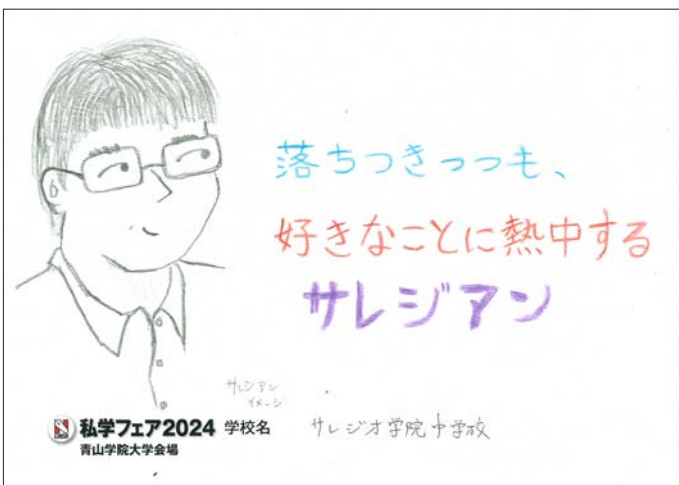 落ちつきつつも、
好きなことに熱中する
サレジアン
サレジアン
イメージ
私学フェア2024 学校名 サレジオ学院中学校
青山学院大学会場